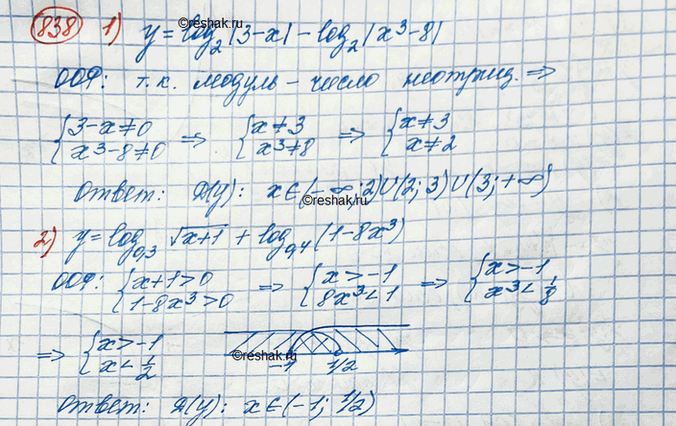 ©reshak.ru
838 1) y = log₂|3-x| - log₂|x³-8|
ООФ: т.к. модуль - число неотриц. ⇒
{3-x≠0 ⇒ {x≠3 ⇒ {x≠3
{x³-8≠0 {x³≠8 {x≠2
Ответ: D(y): x∈(-∞;2)U(2;3)U(3;+∞)
©reshak.ru
2) y = log₀,₃ √x+1 + log₀,₄(1-8x³)
ООФ: {x+1>0 ⇒ {x>-1 ⇒ {x>-1
{1-8x³>0 {8x³<1 {x³<1/8
⇒ {x>-1
{x<1/2
©reshak.ru
-1 1/2
Ответ: D(y): x∈(-1; 1/2)